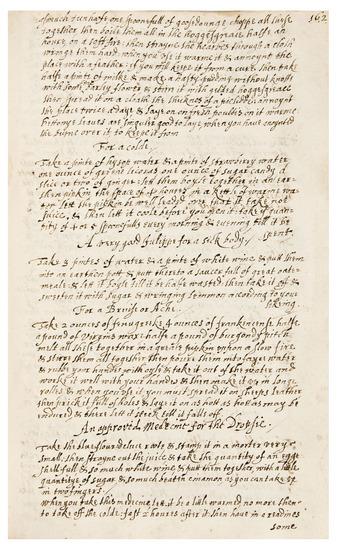 162
spinach turnhafe one spoonfull of goosdounge choppe all these
together then boile them all in the hogges grease halfe an
houre on a soft fire: then strayne the hearbes through a cloth
wringe them hard when you use it warme it & annoynt the
place with a feather: if you will take of from a cure then take
halfe a pinte of milke & make a hasty pudding without knotts
with some barly flower & stirr it with ye old hogges grease
then spread it on a cloth the thicknes of a plaister annoynt
the place twice a day & lay on on fresh poultis on it warme
bittonye leaves are singuler good to laye when you have annoynted
the same over it to keepe it from
For a colde.
Take a pinte of hysop water & a pinte of strawbery water
one ounce of greene licoras one ounce of sugar candy a
slice or two of ginger: lett them boyle together in an earthen
pipkin the space of 4 houres in a kettle of warme wa-
ter lett the pipkin be well leuted over that it take not
juice, & then lett it coole before you open it: take ye quan-
tity of 4 or 5 spoonfulls every morning & evening till it be
spent.
A very good Julipp for a sick body
Take 3 pintes of water & a pinte of white wine & put them
into an earthen pott & put thereto a saucer full of great oate-
meale & lett it boyle till it be halfe wasted then take it off &
sweeten it with sugar & wringing in lemmon according to your
likeing.
For a Bruise or Ache.
Take 2 ounces of fenugreeke 4 ounces of frankinsense halfe
a pound of virgins wax halfe a pound of burgondy pitch
melt all these together in a greate pipkin upon a slow fire
& stirre them all together then poure them into large water
& rubb your handes with oyle & take it out of the water and
worke it well with your handes & then make it up in long
rolles & when you use it you must spread it on sheeps leather
then prick it full of holes & lay it on as hott as hott as may be
endured & there lett it stick till it falls off.
An approved Medicine for the Dropsie.
Take the blew flour deluce roots & stamp it in a morter very
small, then strayne out the juice & take the quantity of an egge
shell full & so much white wine & put them together, with a little
quantitye of sugar & so much beaten cinamon as you can take up
in two fingers.
when you take this medicine lett it be a little warmed no more then
to take off the colde: fast 2 houres after it then have in a readines
some